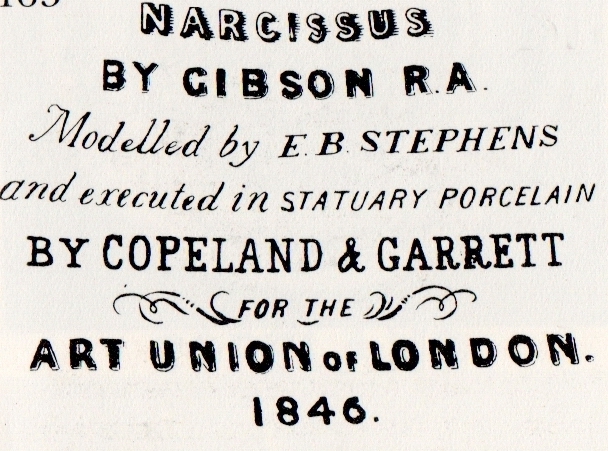 NARCISSUS
BY GIBSON R.A.
Modelled by E.B. STEPHENS
and executed in STATUARY PORCELAIN
BY COPELAND & GARRETT
FOR THE
ART UNION OF LONDON.
1846.